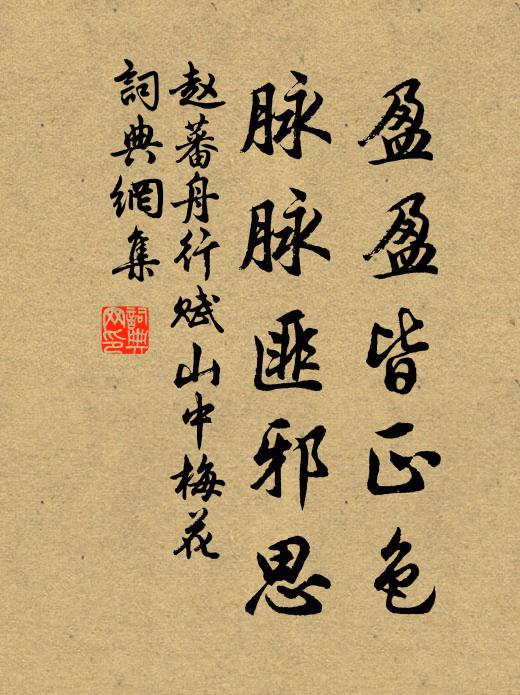 盈盈皆正色
脉脉匪邪思
赵蕃舟行赋山中梅花
詞典網集
詞典网印